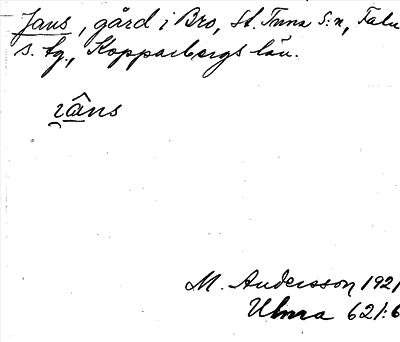 Jans, gård i Bro, St. Tuna S:n, Falu
s. tg., Kopparbergs län.
M. Andersson 1921
Ulma 621:6